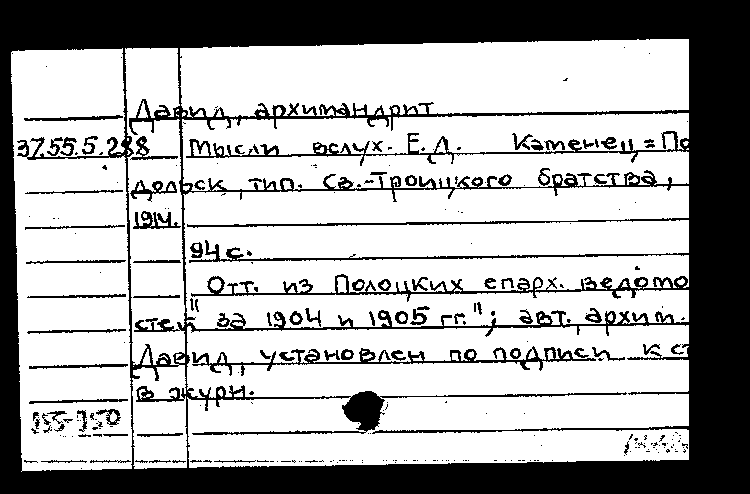 Давид, архимандрит
37.55.5.288 Мысли вслух. Е.Д. Каменец=По
дольск, тип. Св.-Троицкого братства,
1914.
94 с.
Отт. из "Полоцких епарх. ведомо
стей за 1904 и 1905 гг."; авт., архим.
Давид, установлен по подписи к ст
в журн.